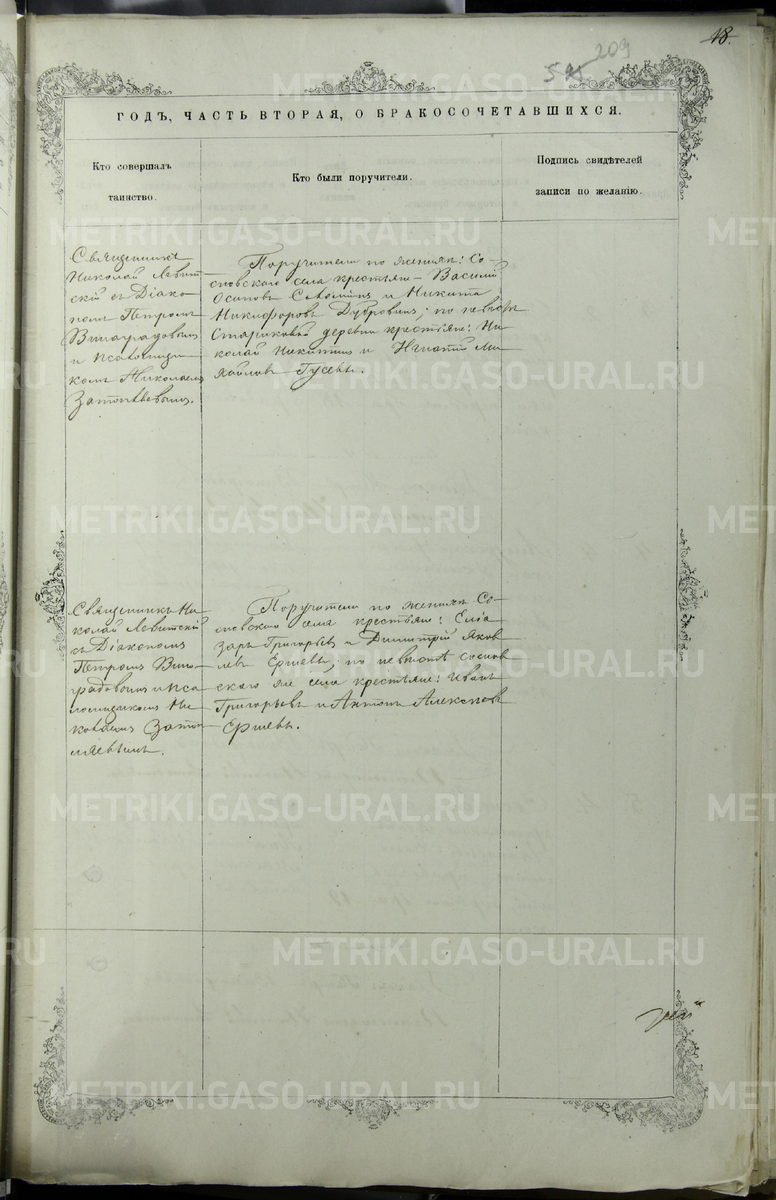 18.
209
ГОДЪ, ЧАСТЬ ВТОРАЯ, О БРАКОСОЧЕТАВШИХСЯ.
Кто совершалъ
таинство.
Кто были поручители.
Подпись свидѣтелей
записи по желанію.
Священникъ
Николай Левит-
скій съ Діако-
номъ Петромъ
Виноградовымъ
и псаломщи-
комъ Николаемъ
Затопляевымъ.
Поручители по женихѣ: Со-
сновскаго села крестьяне – Василій
Осиповъ и Никита
Никифоровъ Дубровинъ; по невѣстѣ
Стариковой деревни крестьяне: Ни-
колай Никитинъ и Игнатій Ми-
хайловъ Гусевы.
Священникъ Ни-
колай Левитскій
съ Діакономъ
Петромъ Вино-
градовымъ и пса-
ломщикомъ Ни-
колаемъ Затоп-
ляевымъ.
Поручители по женихѣ Со-
сновскаго села крестьяне: Еліа-
заръ Григорьевъ и Димитрій Яков-
левъ Ершевы, по невѣстѣ соснов-
скаго же села крестьяне: Иванъ
Григорьевъ и Антонъ Алексѣевъ
Ершевы.
METRIKI.GASO-URAL.RU